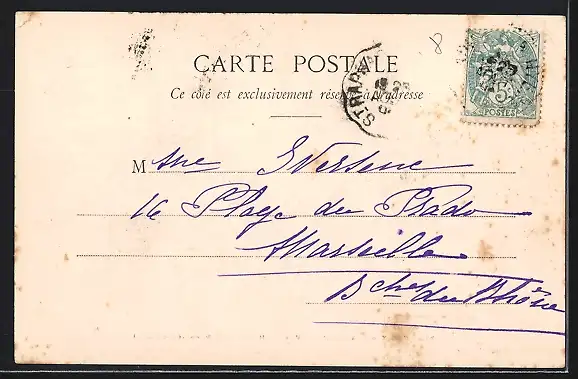 8
CARTE POSTALE
Ce côté est exclusivement réservé à l'adresse
5
POSTES
ST RAPH
M
16 Plage du Prado
Marseille
Bches du Rhône